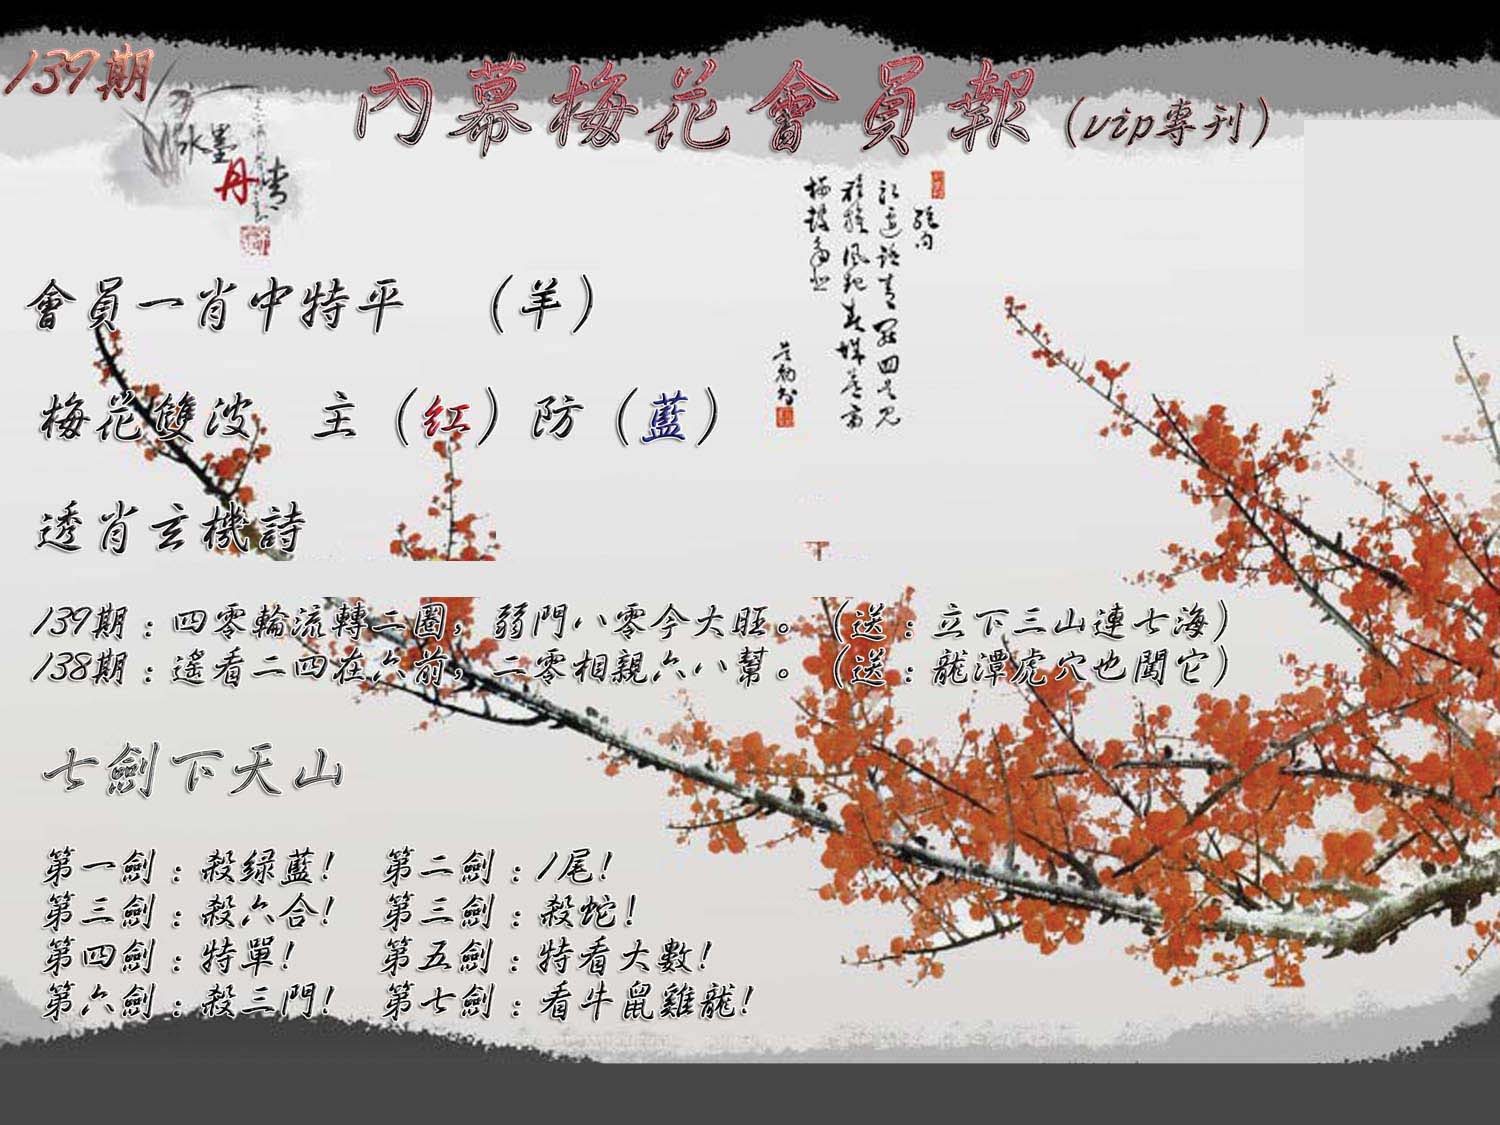 139期
內幕梅花會員報（vip專刊）
水墨
丹青
會員一肖中特平　（羊）
梅花雙波　主（紅）防（藍）
透肖玄機詩
139期：四零輪流轉二圈，弱門八零今大旺。（送：立下三山連七海）
138期：遙看二四在六前，二零相親六八幫。（送：龍潭虎穴也闖它）
七劍下天山
第一劍：殺绿藍！　第二劍：1尾！
第三劍：殺六合！　第三劍：殺蛇！
第四劍：特單！　第五劍：特看大數！
第六劍：殺三門！　第七劍：看牛鼠雞龍！